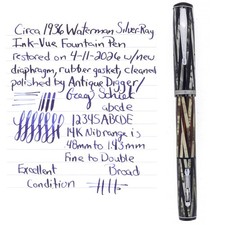 Circa 1936 Waterman Silver-Ray
Ink-Vue Fountain Pen
restored on 4-11-2026 w/new
diaphragm, rubber gasket, cleaned
polished by Antique Digger/
Greg Schiet
abcde
12345 ABCDE
14K Nib range is
.48mm to 1.93mm
Fine to Double
Excellent Broad
Condition